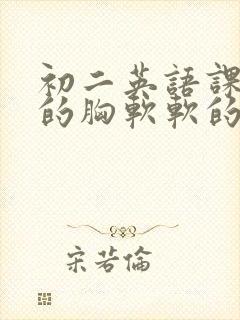 初二英語課
的胸軟軟的
宋若倫